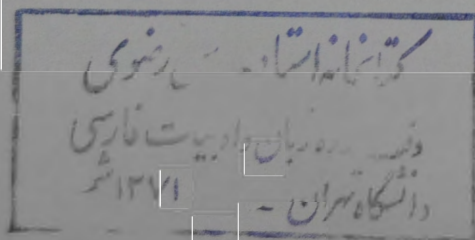 کتابخانه استاد رضوی
زبان و ادبیات فارسی
دانشگاه تهران - ۱۳۷۱